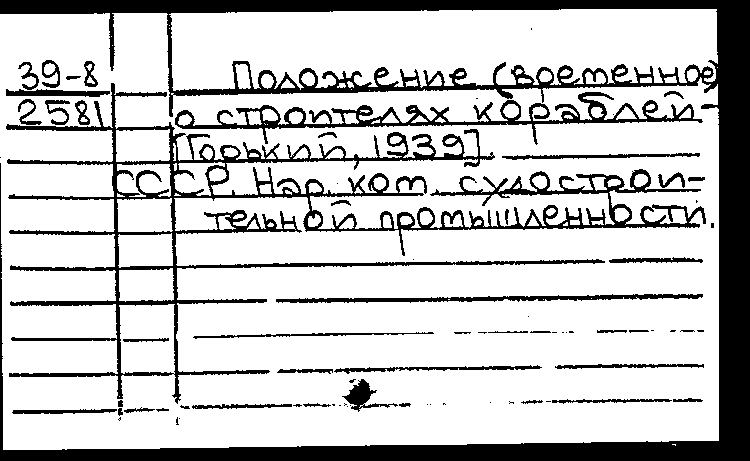 39-8 Положение (временное)
2581 о строителях кораблей-
[Горький, 1939].
СССР. Нар. ком. судострои-
тельной промышленности.